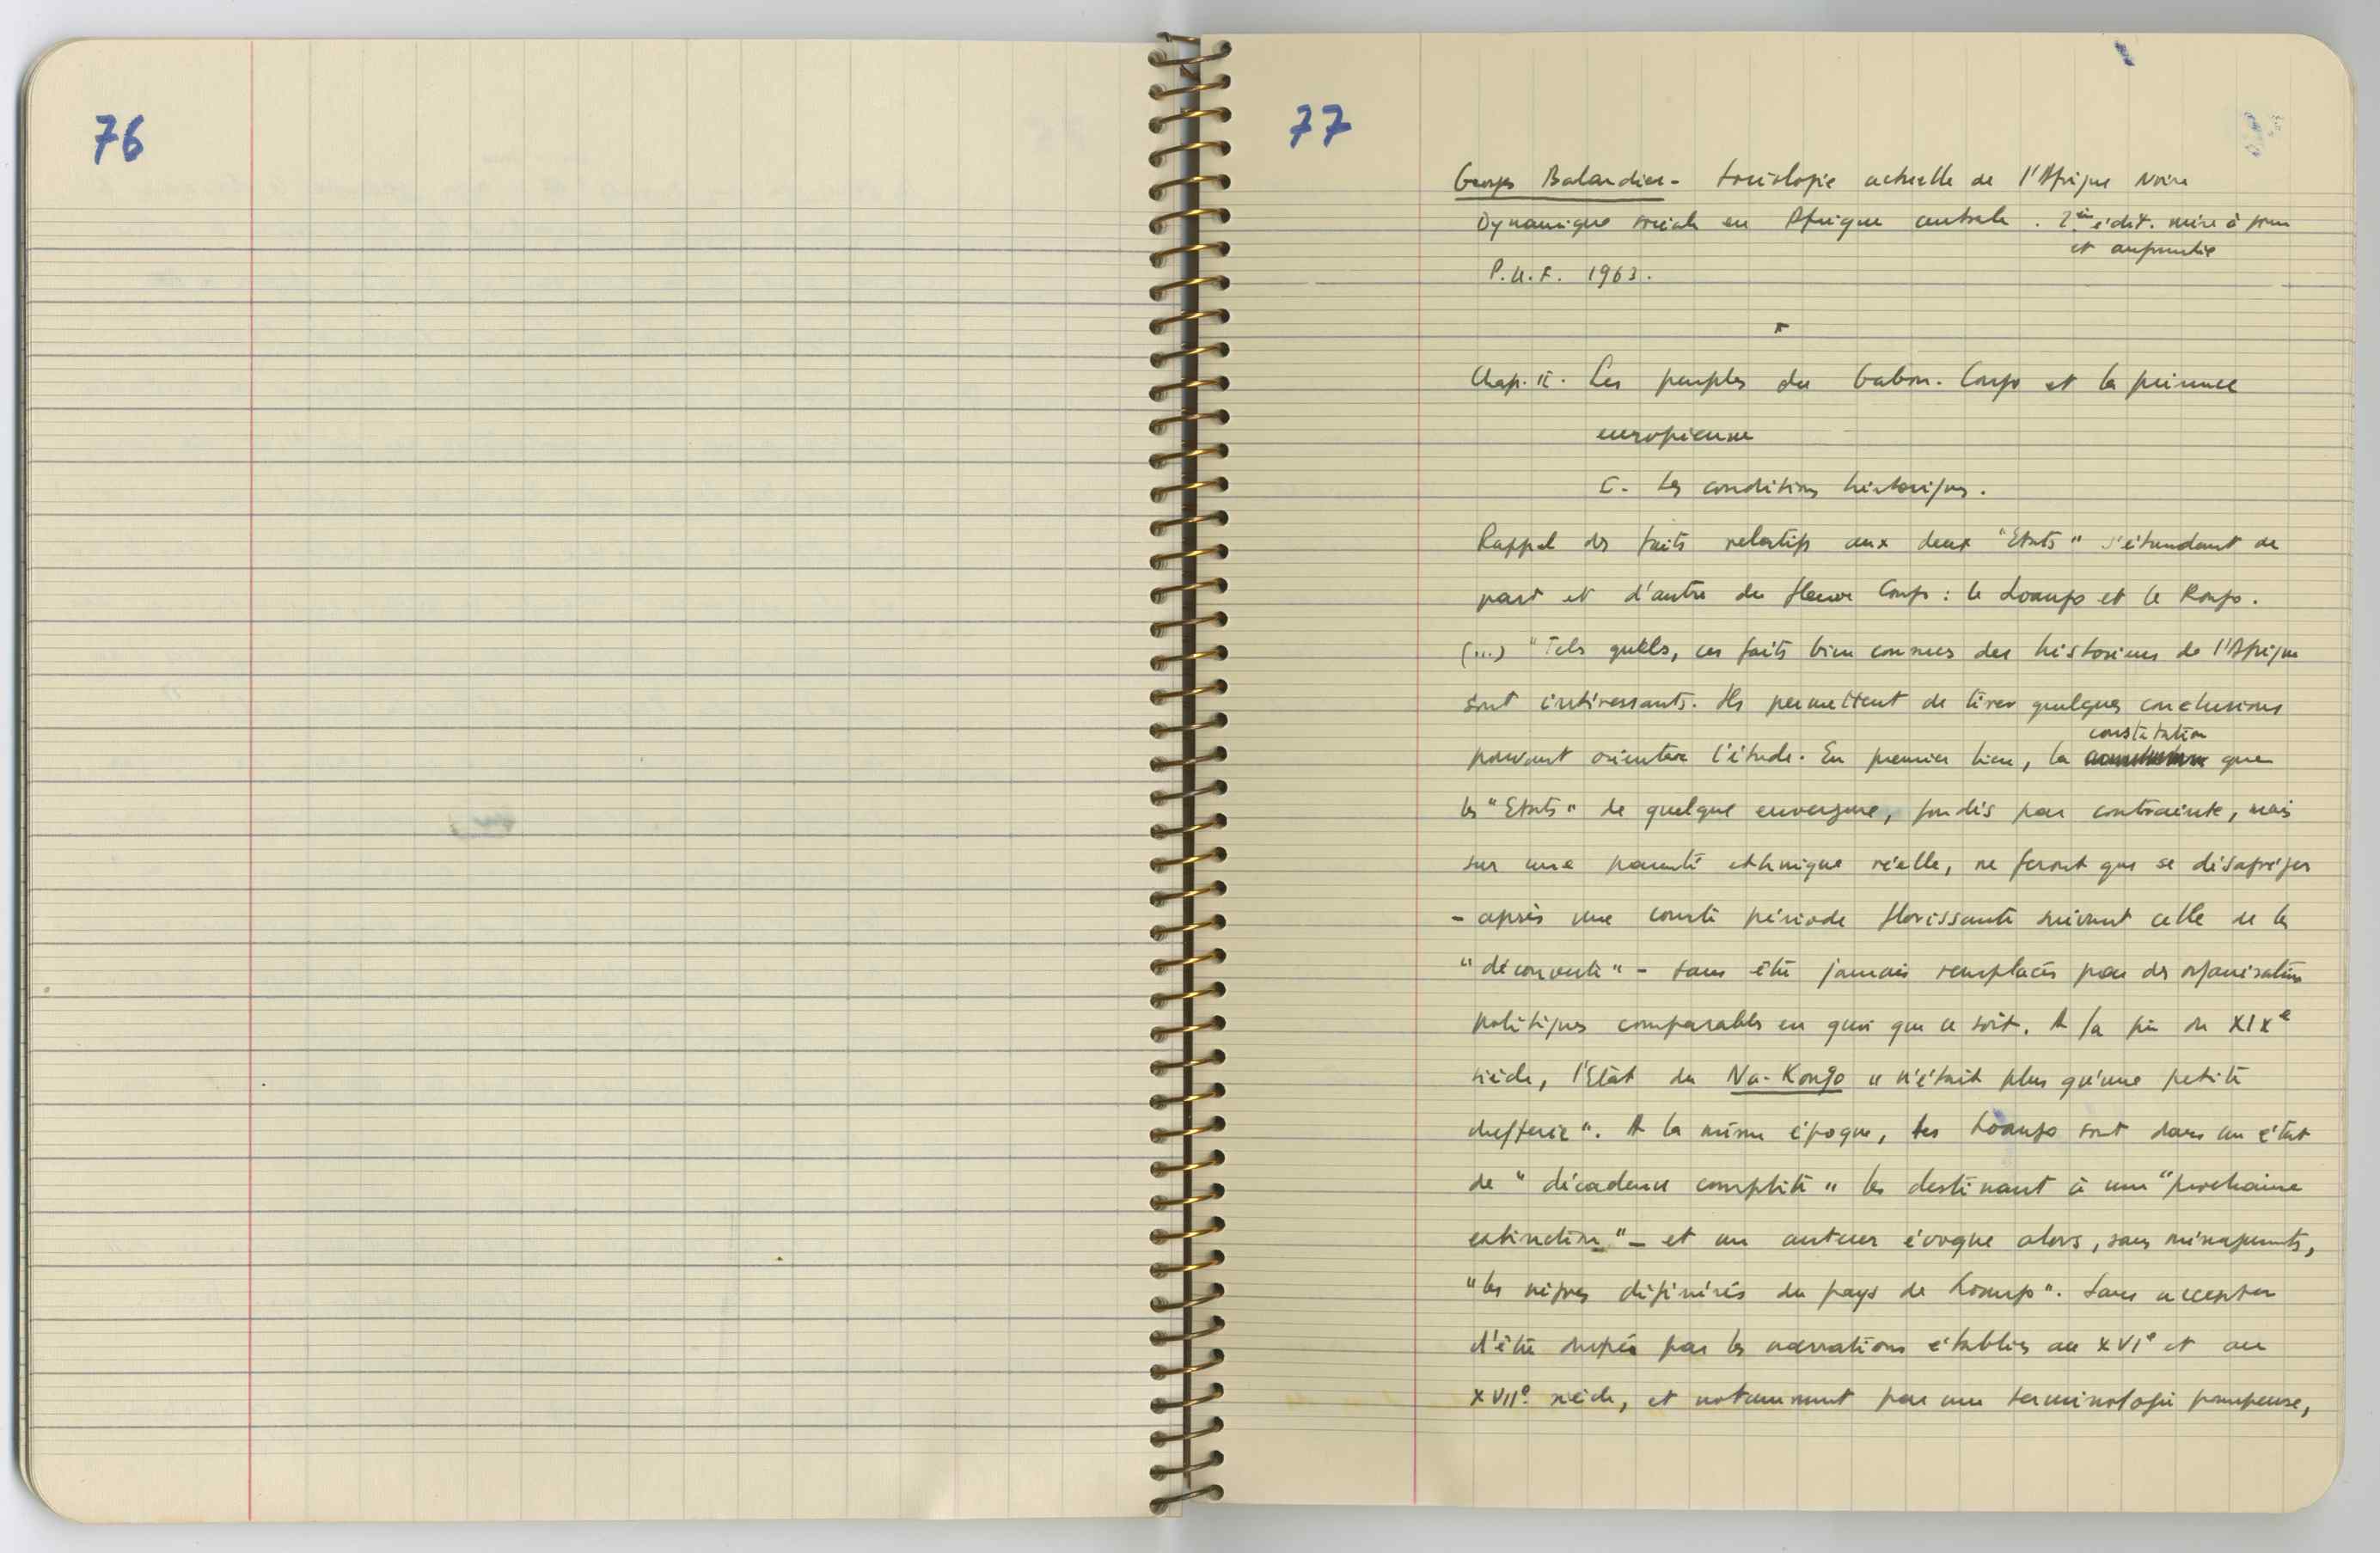 76
77
Georges Balandier - Sociologie actuelle de l'Afrique Noire
Dynamique sociale en Afrique centrale. 2ème édit. mise à jour
et augmentée
P.U.F. 1963.
*
Chap. II. Les peuples du Gabon-Congo et la présence
européenne
I - Les conditions historiques.
Rappel des faits relatifs aux deux "Etats" s'étendant de
part et d'autre du fleuve Congo : le Loango et le Kongo.
(...) "Tels quels, ces faits bien connus des historiens de l'Afrique
sont intéressants. Ils permettent de tirer quelques conclusions
constatation
pouvant orienter l'étude. En premier lieu, la que
les "Etats" de quelque envergure, fondés par contrainte, mais
sur une parenté ethnique réelle, ne feront que se désagréger
- après une courte période florissante suivant celle de la
"découverte" - sans être jamais remplacés par des organisations
politiques comparables en quoi que ce soit. A la fin du XIXe
siècle, l'Etat du Na-Kongo "n'était plus qu'une petite
chefferie". A la même époque, les Loango sont dans un état
de "décadence complète" les destinant à une "prochaine
extinction" - et un auteur évoque alors, sans ménagements,
"les nègres dégénérés du pays de Loango". Sans accepter
d'être dupés par les narrations établies au XVIe et au
XVIIe siècle, et notamment par une terminologie pompeuse,